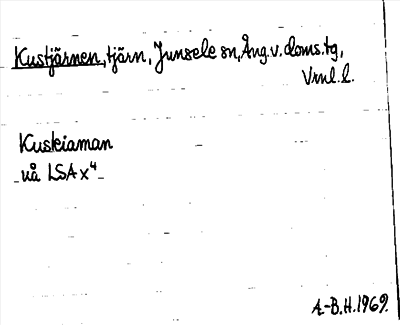 Kustjärnen, tjärn, Junsele sn, Ång. v. doms. tg,
Vrnl. l.
Kuskiaman
uå LSA x⁴
A.-B.H. 1969.